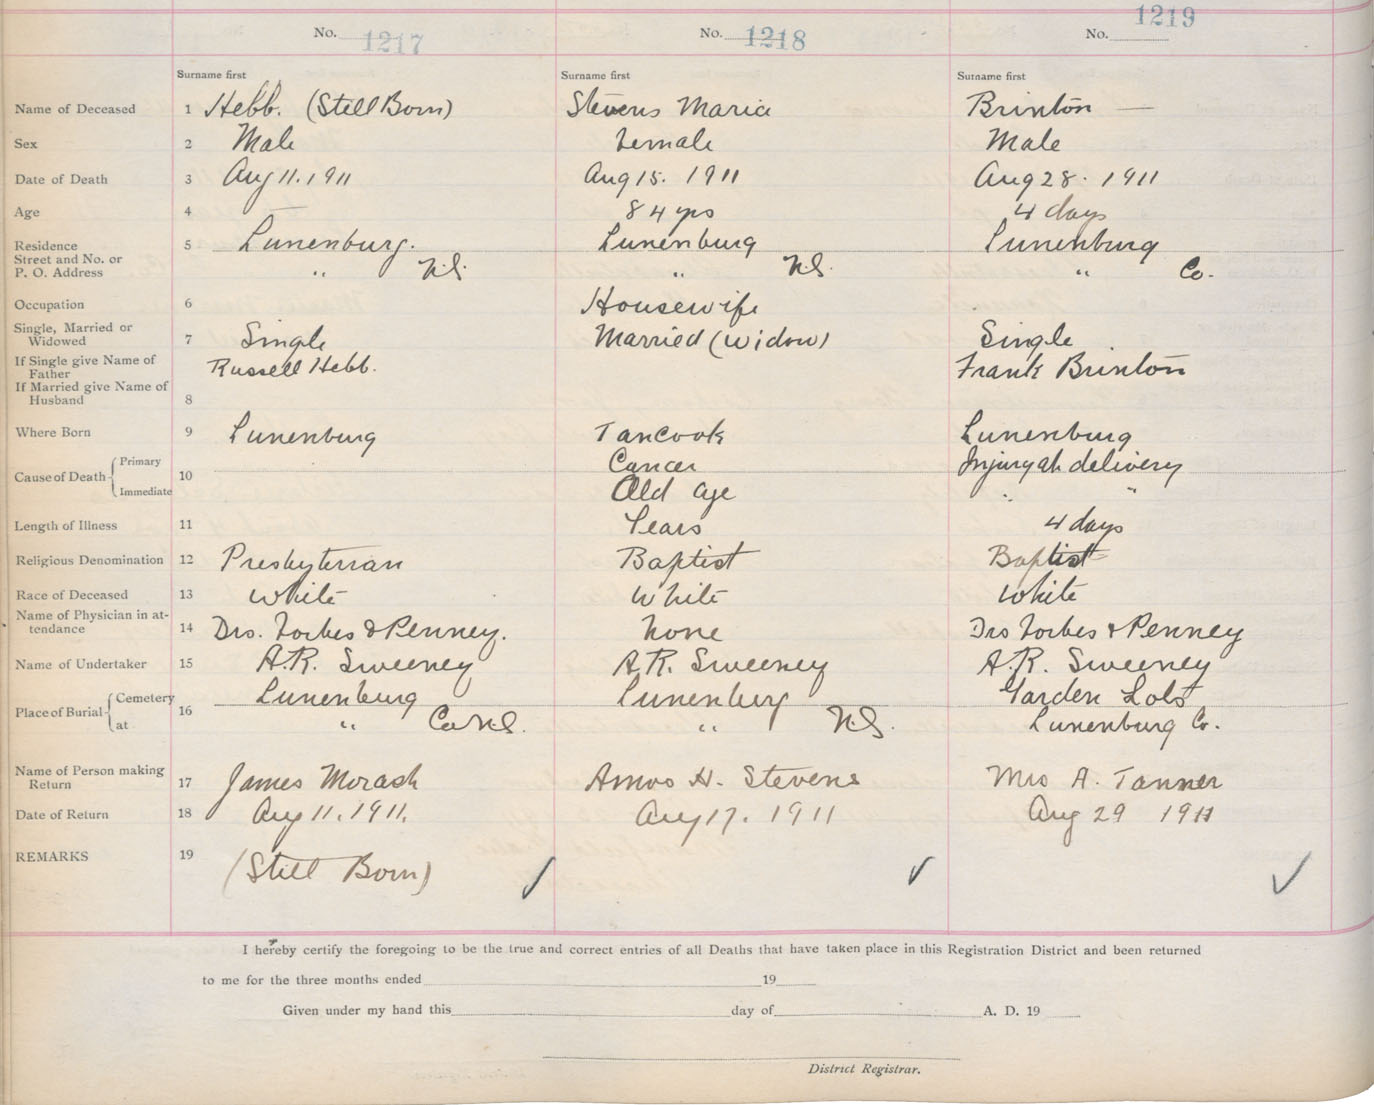 No. 1217 No. 1218 No. 1219
Surname first Surname first Surname first
Name of Deceased 1 Hebb. (Still Born) Stevens Maria Brinton —
Sex 2 Male Female Male
Date of Death 3 Aug 11. 1911 Aug 15. 1911 Aug 28. 1911
Age 4 — 84 yrs 4 days
Residence 5 Lunenburg. Lunenburg Lunenburg
Street and No. or
P. O. Address " N.S. " N.S. " Co.
Occupation 6 Housewife
Single, Married or
Widowed 7 Single Married (widow) Single
If Single give Name of
Father Russell Hebb. Frank Brinton
If Married give Name of
Husband 8
Where Born 9 Lunenburg Tancook Lunenburg
Cause of Death { Primary 10 Cancer Injury at delivery
Immediate Old age " "
Length of Illness 11 Years 4 days
Religious Denomination 12 Presbyterian Baptist Baptist
Race of Deceased 13 White White White
Name of Physician in at-
tendance 14 Drs. Forbes & Penney. None Drs Forbes & Penney
Name of Undertaker 15 A.R. Sweeney A.R. Sweeney A.R. Sweeney
Place of Burial { Cemetery 16 Lunenburg Lunenburg Garden Lots
at " Co N.S. " N.S. Lunenburg Co.
Name of Person making
Return 17 James Morash Amos H. Stevens Mrs A. Tanner
Date of Return 18 Aug 11. 1911. Aug 17. 1911 Aug 29 1911
REMARKS 19 (Still Born) ✓ ✓ ✓
I hereby certify the foregoing to be the true and correct entries of all Deaths that have taken place in this Registration District and been returned
to me for the three months ended 19
Given under my hand this day of A. D. 19
District Registrar.